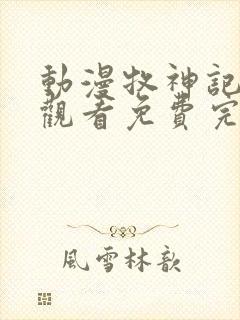 動漫牧神記
觀看免費完
風雪林歆